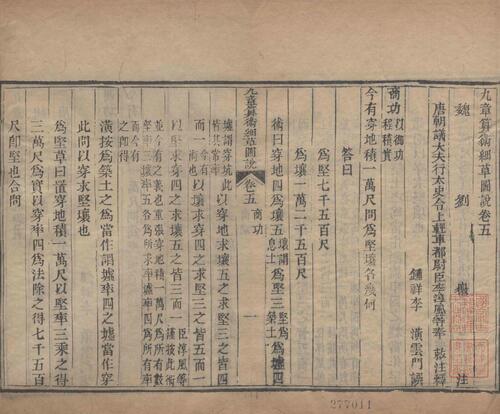 九章算術細草圖說卷五
魏 劉 徽 注
唐朝議大夫行太史令上輕車都尉臣李淳風等奉 敕注釋
鍾祥李 潢雲門譔
商功以御功程積實
今有穿地積一萬尺問為堅壤各幾何
答曰
為堅七千五百尺
為壤一萬二千五百尺
術曰穿地四為壤五壤謂息土為堅三堅謂築土
為墟四墟謂穿坑此以穿地求壤五之求堅三之皆四
九章算術細草圖說 卷五 商功 一
而一今有術也以壤求穿四之求堅三之皆五而一
以堅求穿四之求壤五之皆三而一臣淳風等謹按此術
並今有之義也重張穿地積一萬尺為所有數
堅率三壤率五各為所求率穿率四為所有率
而今有之即得
潢按為築土之為當作謂墟率四之墟當作穿
此問以穿求堅壤也
為堅草曰置穿地積一萬尺以堅率三乘之得
三萬尺為實以穿率四為法除之得七千五百
尺即堅也合問
277011